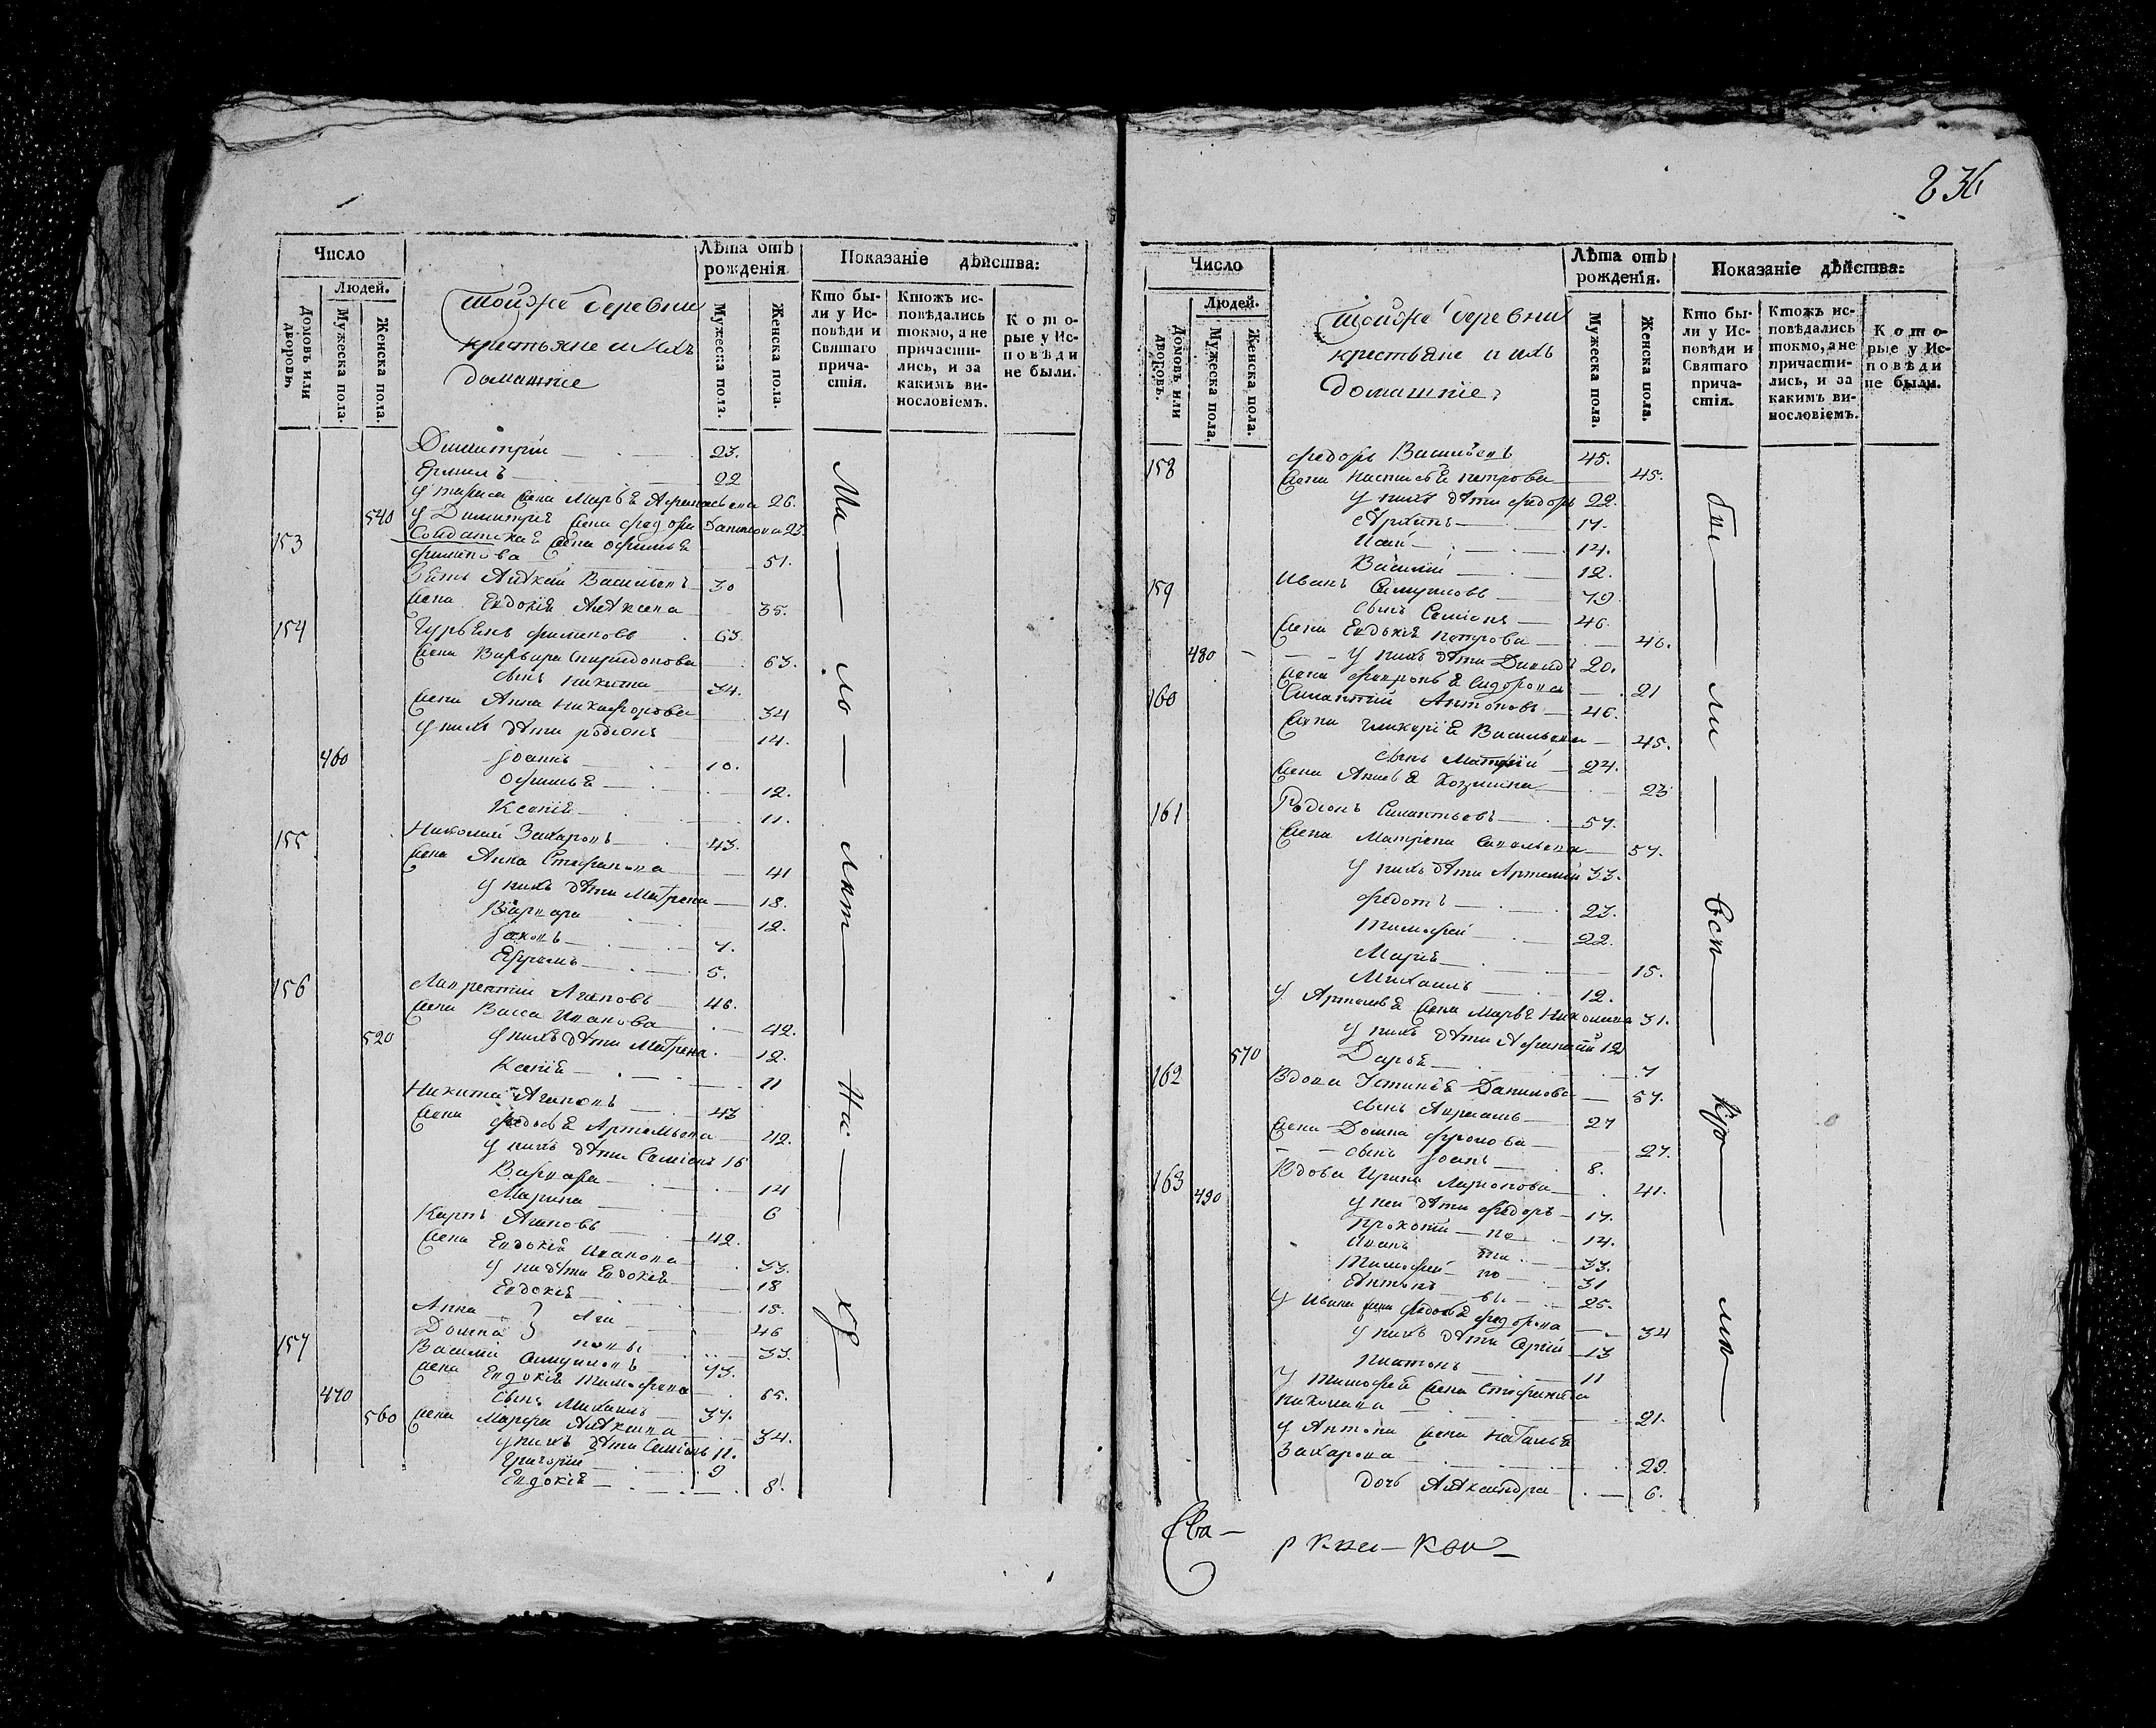 Число
Людей.
Домовъ или дворовъ.
Мужеска пола.
Женска пола.
тойже деревни
крестьяне и ихъ
домашніе
Лѣта отъ рожденія
Мужеска пола.
Женска пола.
Показаніе дѣйства:
Кто бы-
ли у Ис-
повѣди и
Святаго
прича-
стія.
Ктожъ ис-
повѣдались
токмо, а не
причасти-
лись, и за
какимъ ви-
нословіемъ.
Кото-
рые у Ис-
повѣди
не были.
Димитрій 23.
Ермилъ 22
жена Марья 26.
540 у Димитрия жена 23.
153 Солдатская жена Офимья
Филипова 51.
Зять Алѣксѣй Васильевъ 30
жена Евдокія Алѣксѣева 35.
154 Гурьянъ Филиповъ 63
жена Варвара Спиридонова 63.
сынъ Никита 34.
жена Анна Никифорова 34
у нихъ дѣти родіонъ 14.
460 Іоаннъ 10.
Офимья 12.
Ксенія 11.
155 Николай Захаровъ 43.
жена Анна Стефанова 41
у нихъ дѣти Матрена 18.
Варвара 12.
Іаковъ 7.
Ефремъ 5.
156 Лаврентій Агаповъ 46.
жена Васса Иванова 42.
520 у нихъ дѣти Матрена 12.
Ксенія 11
Никита Агаповъ 43
жена Федосья Артемьева 42.
у нихъ дѣти Семіонъ 16
Варвара 14
Марина 6
Карпъ Агаповъ 42.
жена Евдокія Иванова 33.
дѣти Евдокія 18
Евдокія 15.
Анна 46
Домна 33.
157 Василій 73.
жена Евдокія Тимофеева 65.
470 сынъ Михаилъ 37.
560 жена Марфа Алѣксѣева 34.
у нихъ дѣти Семіонъ 11.
Григорій 9
Евдокія 8.
236
Число
Людей.
Домовъ или дворовъ.
Мужеска пола.
Женска пола.
тойже деревни
крестьяне и ихъ
домашніе
Лѣта отъ рожденія.
Мужеска пола.
Женска пола.
Показаніе дѣйства:
Кто бы-
ли у Ис-
повѣди и
Святаго
прича-
стія.
Ктожъ ис-
повѣдались
токмо, а не
причасти-
лись, и за
какимъ ви-
нословіемъ.
Кото-
рые у Ис-
повѣди
не были.
158 Федоръ Васильевъ 45.
жена Настасья Петрова 45.
у нихъ дѣти Федоръ 22.
Архипъ 17.
14.
Василій 12.
159 Иванъ 79
сынъ Семіонъ 46.
жена Евдокія Петрова 46.
480 у нихъ дѣти Давидъ 20.
жена Февронья Сидорова 21
160 Силантій Антоновъ 46.
жена Гликерія Васильева 45.
сынъ 24.
жена Козмина 23
161 Родіонъ Силантьевъ 57.
жена Матрена Савельева 57.
у нихъ дѣти Артемій 33.
Федотъ 23.
Тимофей 22.
Марія 15.
Михаилъ 12.
у Артемья жена Марья 31.
у нихъ дѣти 12
570 Дарья 7
162 Вдова Устинья Данилова 57.
сынъ 27
жена Домна 27.
сынъ Іоанъ 8.
163 Вдова Ирина Ларионова 41.
490 у неи дѣти Федоръ 17.
Прокопій 14.
Иванъ 33.
Тимофей 31
Антонъ 25.
у Ивана жена Федосья Федорова 34
у нихъ дѣти Сергій 13
Платонъ 11
у Тимофея жена Стефанида
21.
у Антона жена Наталья
Захарова 29.
дочь Алѣксандра 6.